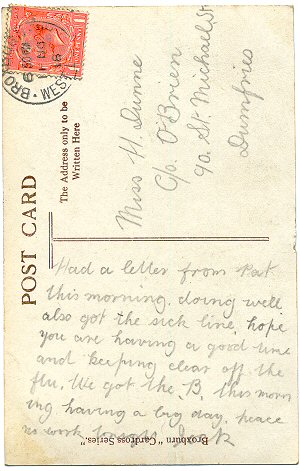 POST CARD
The Address only to be
Written Here
Miss H. Dunne
C/o. O'Brien
90. St. Michael St
Dumfries
Had a letter from Pat
this morning. doing well
also got the sick line. hope
you are having a good time
and keeping clear off the
flu. We got the B. this morn
ing having a big day. peace
no work Jack
Broxburn "Cardross Series."